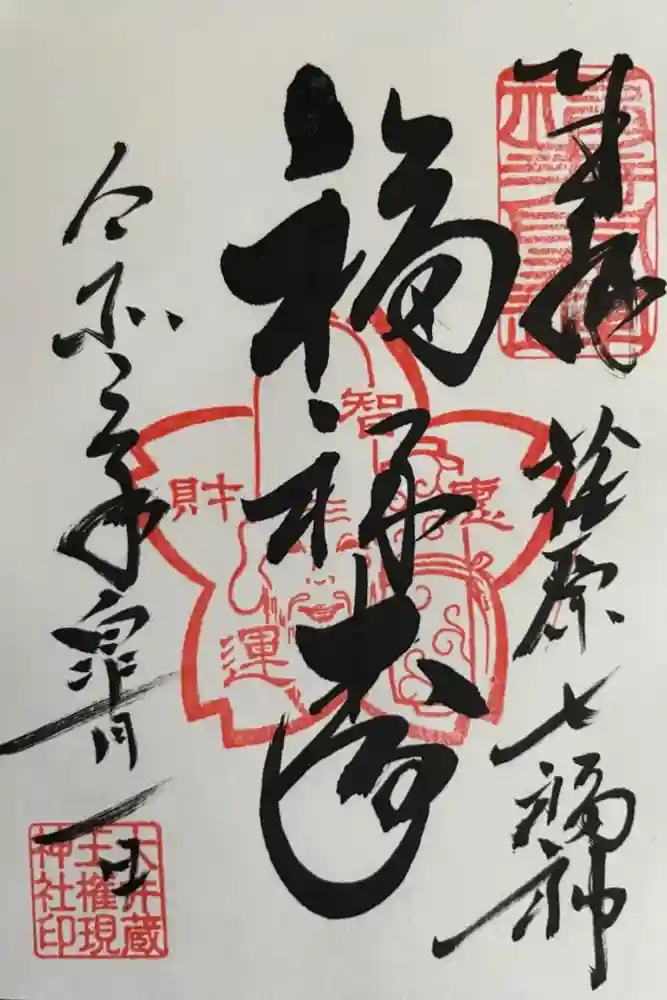 奉拝
荏原七福神
福禄寿
智恵
財運
令和元年皐月一日
大井蔵
王権現
神社印